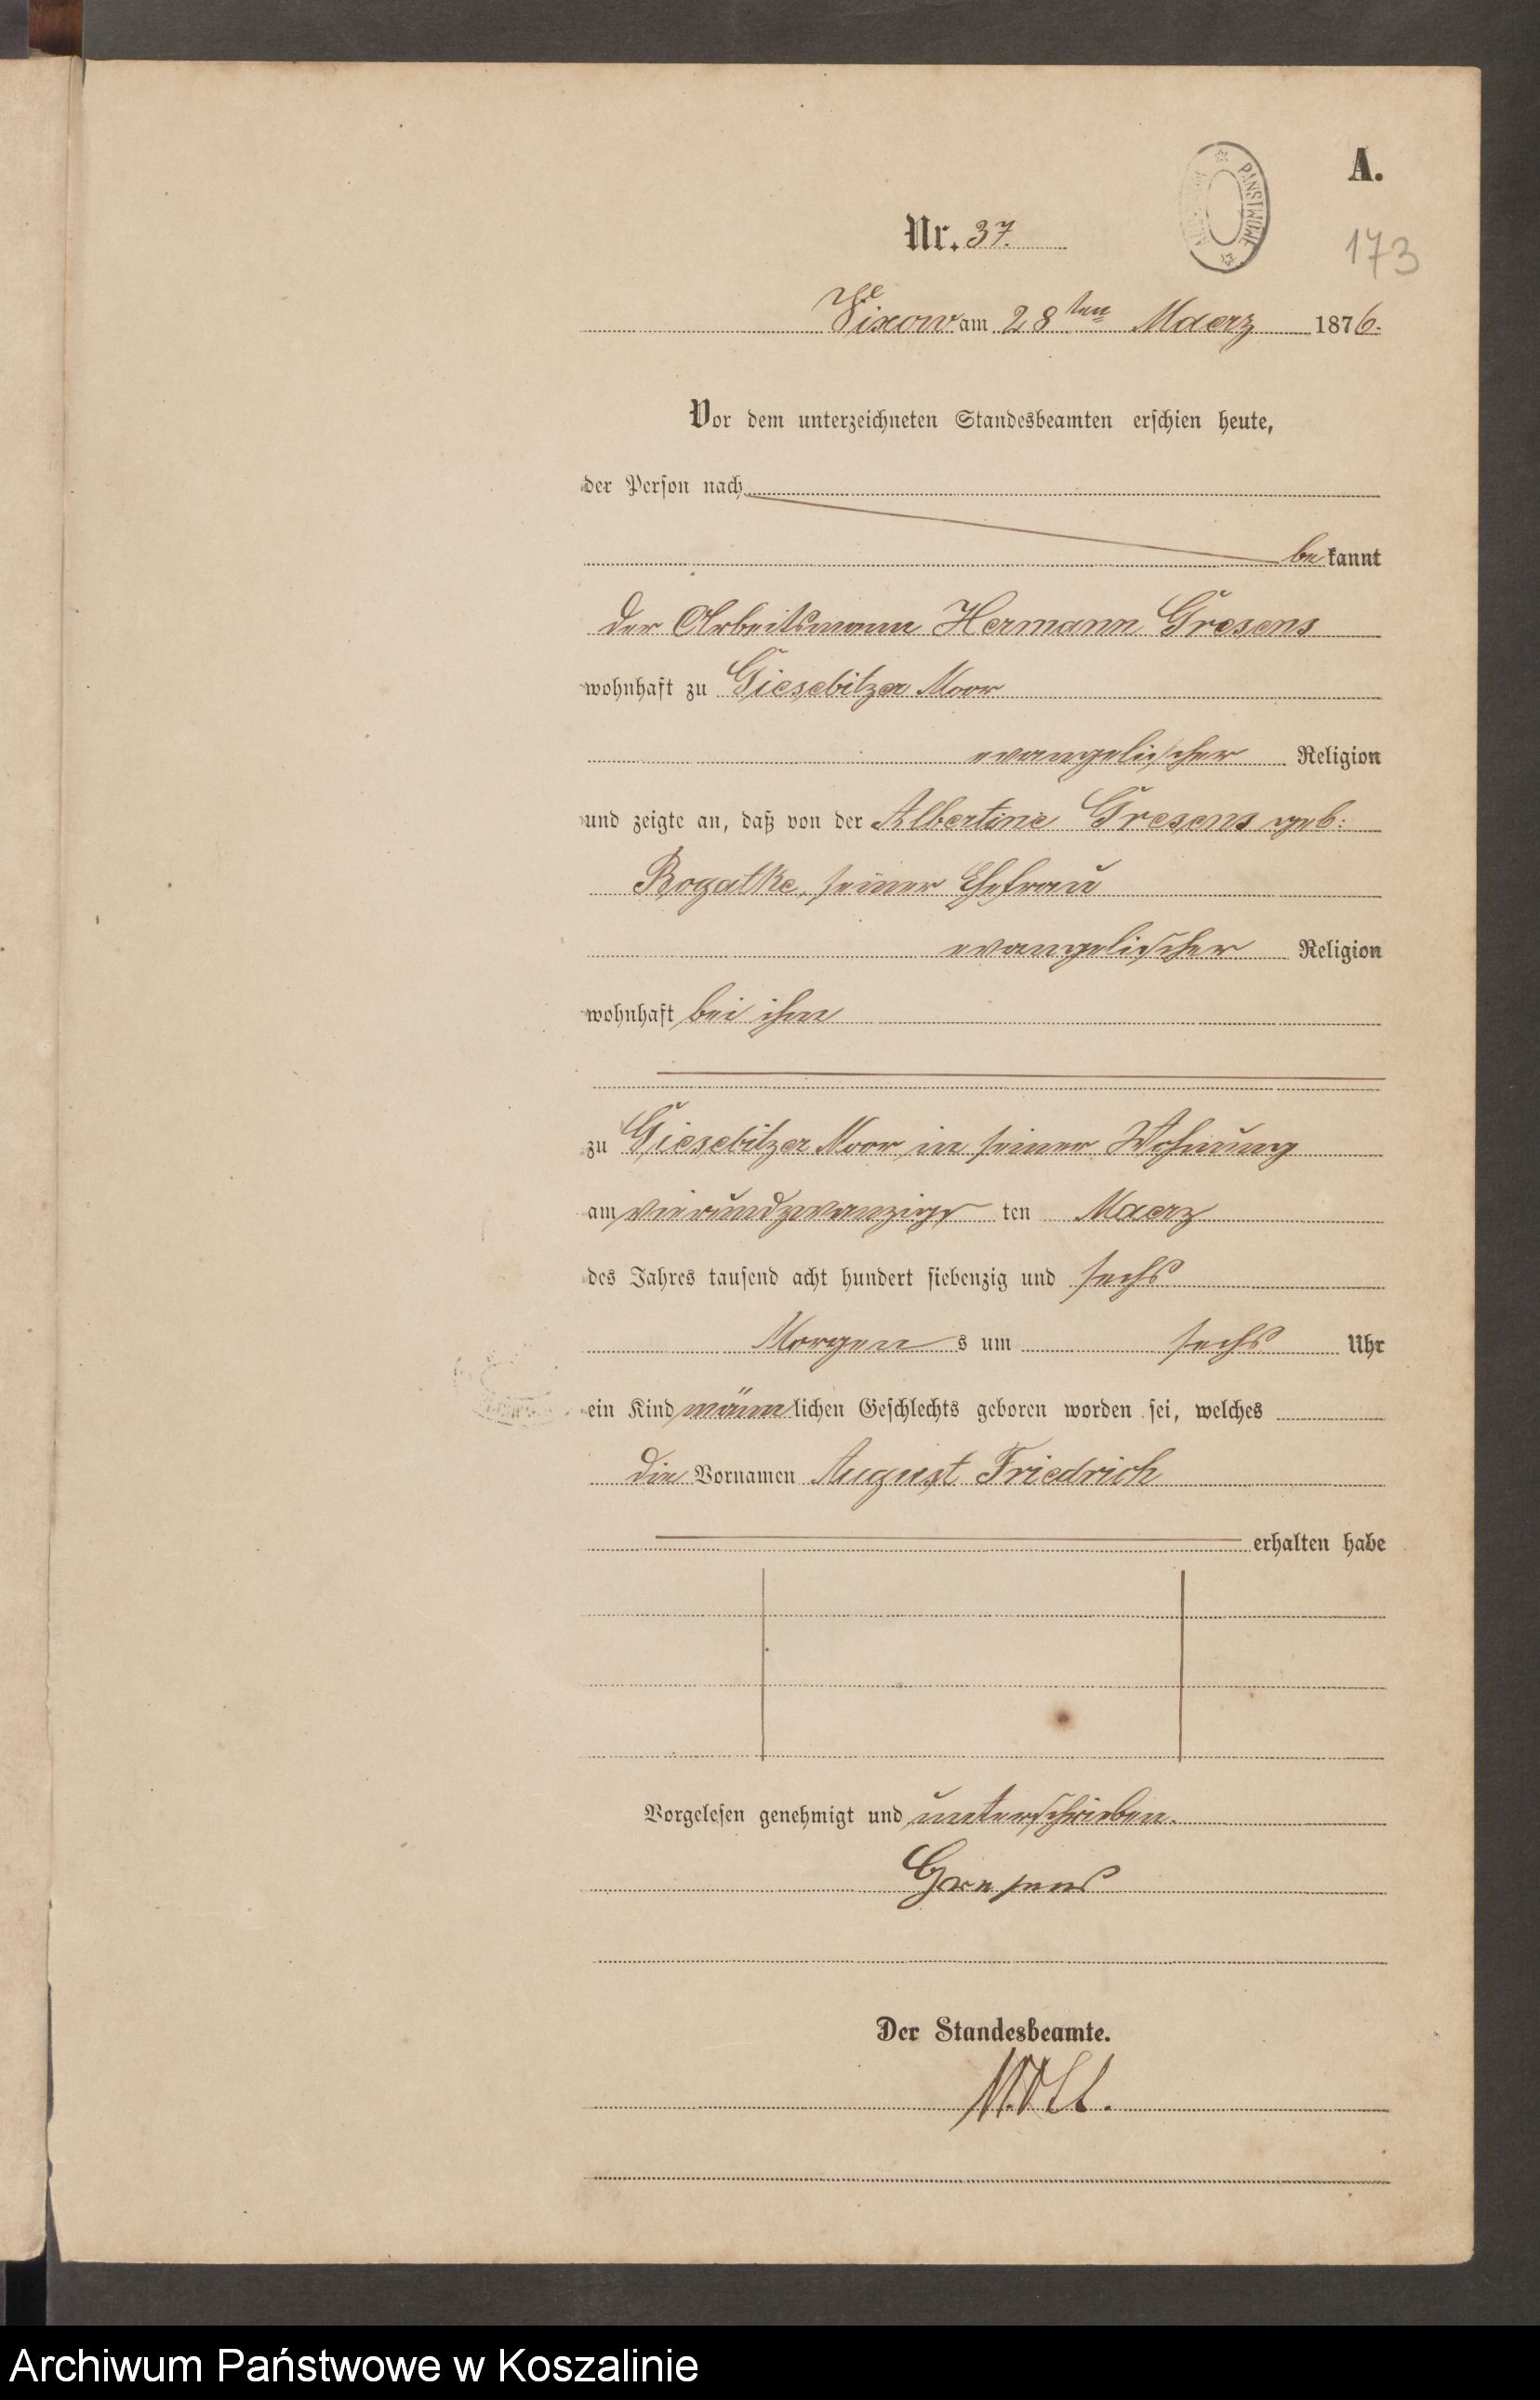 A.
PAŃSTWOWE
173
Nr. 37.
Vixow am 28ten Maerz 1876.
Vor dem unterzeichneten Standesbeamten erschien heute,
der Person nach
bekannt
der Arbeitsmann Hermann Gresens
wohnhaft zu Giesebitzer Moor
evangelischer Religion
und zeigte an, daß von der Albertine Gresens geb:
Rogatke, seiner Ehefrau
evangelischer Religion
wohnhaft bei ihm
zu Giesebitzer Moor in seiner Wohnung
am vierundzwanzigs ten Maerz
des Jahres tausend acht hundert siebenzig und sechs
Morgen s um sechs Uhr
ein Kind männlichen Geschlechts geboren worden sei, welches
die Vornamen August Friedrich
erhalten habe
Vorgelesen genehmigt und unterschrieben.
Gresens
Der Standesbeamte.
Archiwum Państwowe w Koszalinie